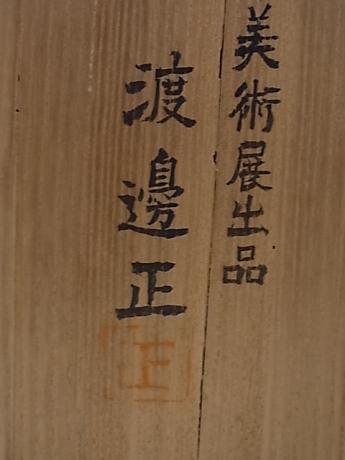 美術展出品
渡邊正
正